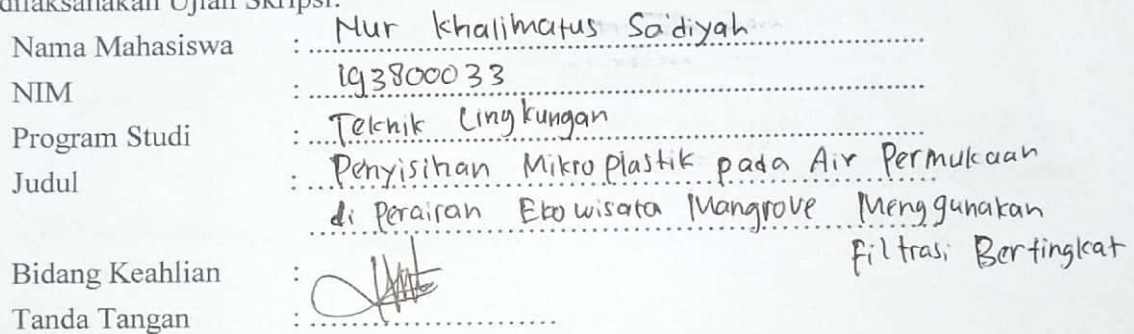 dilaksanakan Ujian Skripsi.
Nama Mahasiswa : Nur Khalimatus Sa'diyah
NIM : 193800033
Program Studi : Teknik Lingkungan
Judul : Penyisihan Mikroplastik pada Air Permukaan
di Perairan Ekowisata Mangrove Menggunakan
Filtrasi Bertingkat
Bidang Keahlian :
Tanda Tangan :